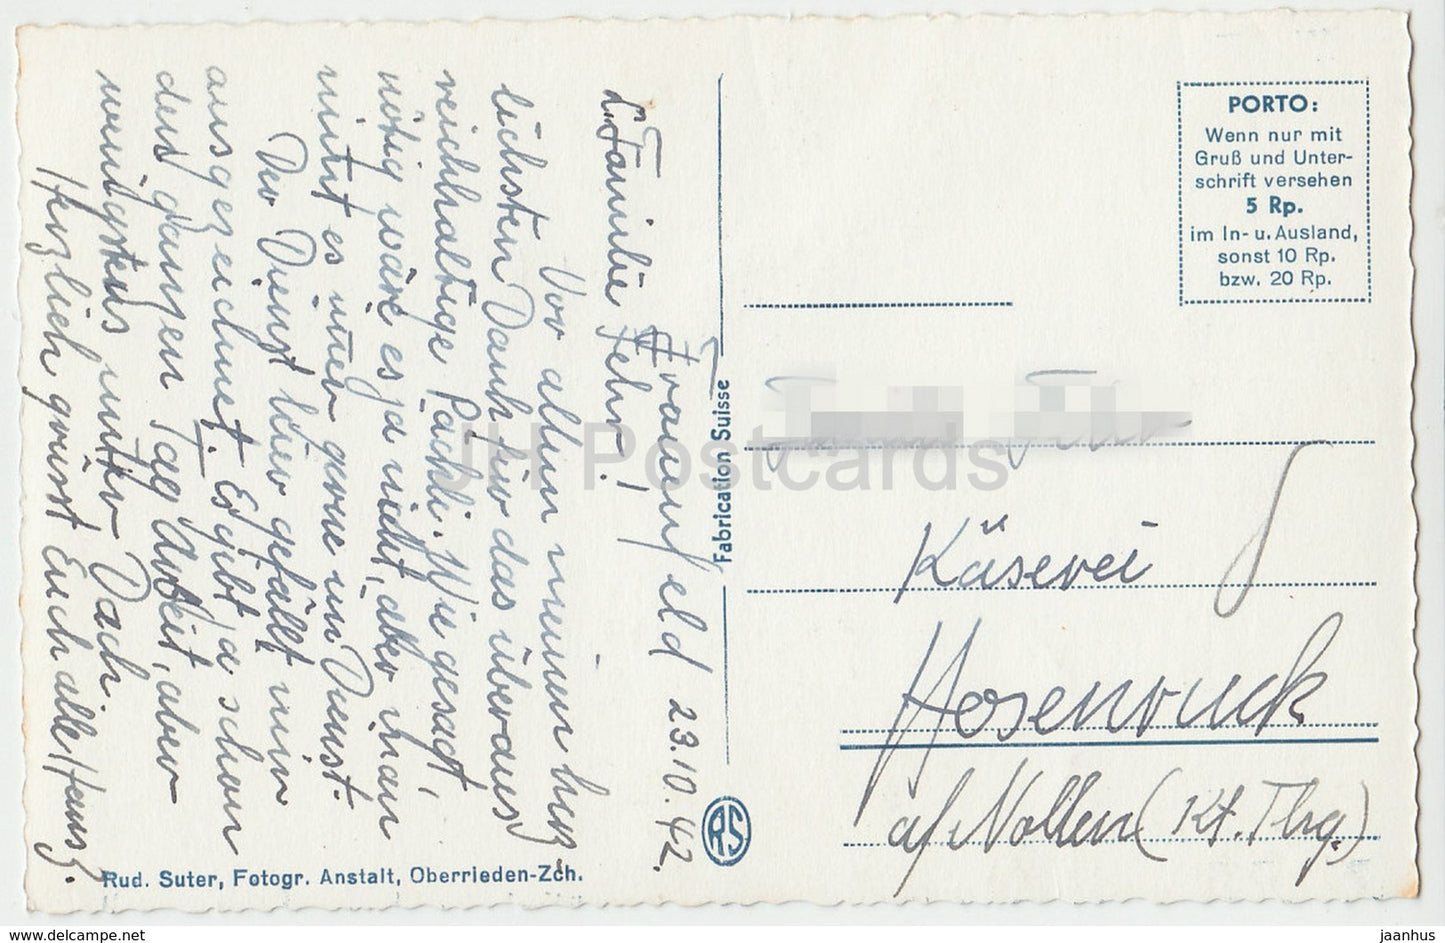 Frauenfeld 23.10.42.
L. Familie Fehr!
Vor allem meinen herz
lichsten Dank für das überaus
reichhaltige Päckli. Wie gesagt,
nötig wäre es ja nicht, aber man
nimt es immer gerne im Dienst.
Der Dienst hier gefällt mir
ausgezeichnet. Es gibt ja schon
den ganzen Tag Arbeit, aber
wenigstens unter Dach.
Herzlich grüsst Euch alle Hans.
Rud. Suter, Fotogr. Anstalt, Oberrieden-Zch.
Fabrication Suisse
RS
PORTO:
Wenn nur mit
Gruß und Unter-
schrift versehen
5 Rp.
im In- u. Ausland,
sonst 10 Rp.
bzw. 20 Rp.
Käserei
Hosenruck
a/ Nollen (Kt. Thrg.)
JH Postcards
www.delcampe.net
jaanhus